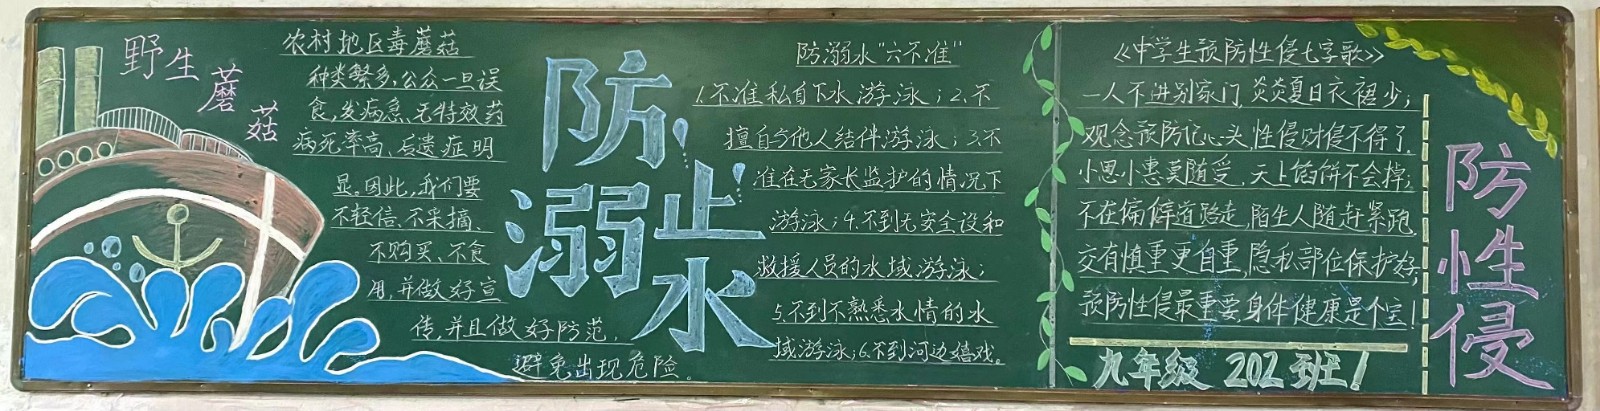 野生蘑菇
农村地区毒蘑菇
种类繁多,公众一旦误
食,发病急、无特效药
病死率高、后遗症明
显。因此,我们要
不轻信、不采摘、
不购买、不食
用,并做好宣
传,并且做好防范,
避免出现危险。
防止
溺水
防溺水"六不准"
1.不准私自下水游泳;2.不
擅自与他人结伴游泳;3.不
准在无家长监护的情况下
游泳;4.不到无安全设和
救援人员的水域游泳;
5.不到不熟悉水情的水
域游泳;6.不到河边嬉戏。
《中学生预防性侵七字歌》
一人不进别家门,炎炎夏日衣裙少;
观念预防记心头,性侵财侵不得了.
小恩小惠莫随受,天上馅饼不会掉;
不在偏僻道路走,陌生人随赶紧跑
交有慎重更自重,隐私部位保护好;
预防性侵最重要,身体健康是个宝!
九年级 202班!
防性侵